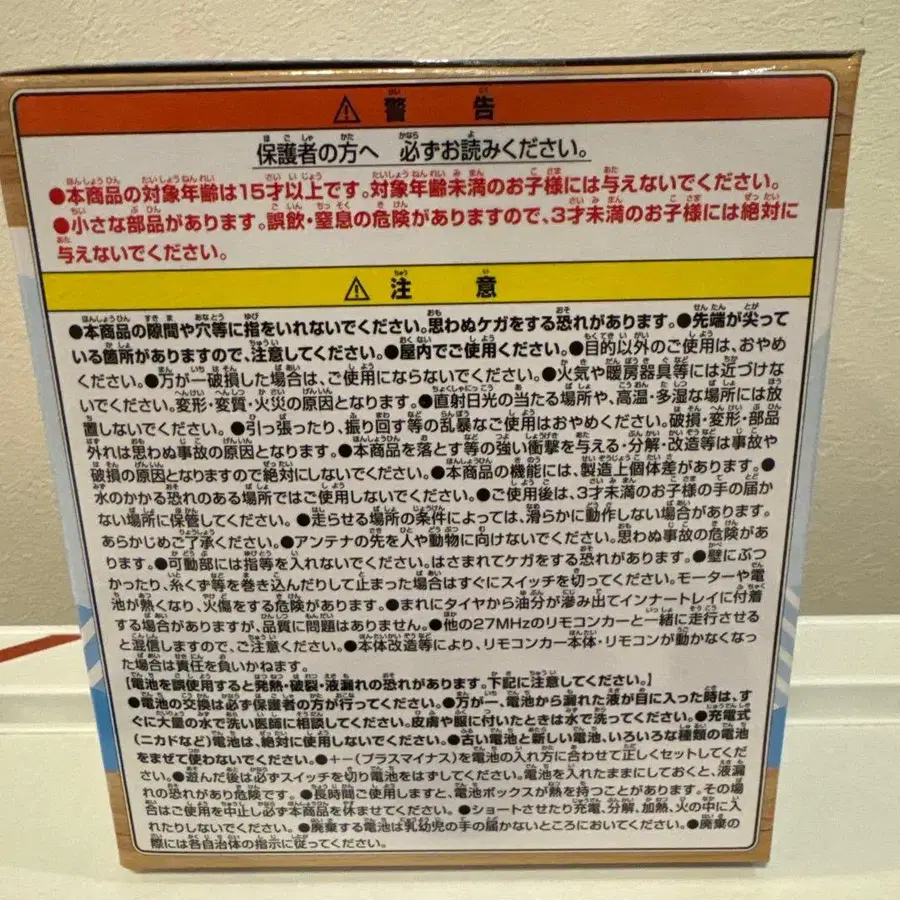 ⚠ 警告
保護者の方へ 必ずお読みください。
●本商品の対象年齢は15才以上です。対象年齢未満のお子様には与えないでください。
●小さな部品があります。誤飲・窒息の危険がありますので、3才未満のお子様には絶対に
与えないでください。
⚠ 注意
●本商品の隙間や穴等に指をいれないでください。思わぬケガをする恐れがあります。●先端が尖って
いる箇所がありますので、注意してください。●屋内でご使用ください。●目的以外のご使用は、おやめ
ください。●万が一破損した場合は、ご使用にならないでください。●火気や暖房器具等には近づけな
いでください。変形・変質・火災の原因となります。●直射日光の当たる場所や、高温・多湿な場所には放
置しないでください。●引っ張ったり、振り回す等の乱暴なご使用はおやめください。破損・変形・部品
外れは思わぬ事故の原因となります。●本商品を落とす等の強い衝撃を与える・分解・改造等は事故や
破損の原因となりますので絶対にしないでください。●本商品の機能には、製造上個体差があります。●
水のかかる恐れのある場所ではご使用しないでください。●ご使用後は、3才未満のお子様の手の届か
ない場所に保管してください。●走らせる場所の条件によっては、滑らかに動作しない場合があります。
あらかじめご了承ください。●アンテナの先を人や動物に向けないでください。思わぬ事故の危険があ
ります。●可動部には指等を入れないでください。はさまれてケガをする恐れがあります。●壁にぶつ
かったり、糸くず等を巻き込んだりして止まった場合はすぐにスイッチを切ってください。モーターや電
池が熱くなり、火傷をする危険があります。●まれにタイヤから油分が滲み出てインナートレイに付着
する場合がありますが、品質に問題はありません。●他の27MHzのリモコンカーと一緒に走行させる
と混信しますので、ご注意ください。●本体改造等により、リモコンカー本体・リモコンが動かなくなっ
た場合は責任を負いかねます。
【電池を誤使用すると発熱・破裂・液漏れの恐れがあります。下記に注意してください。】
●電池の交換は必ず保護者の方が行ってください。●万が一、電池から漏れた液が目に入った時は、す
ぐに大量の水で洗い医師に相談してください。皮膚や服に付いたときは水で洗ってください。●充電式
(ニカドなど)電池は、絶対に使用しないでください。●古い電池と新しい電池、いろいろな種類の電池
をまぜて使わないでください。●+−(プラスマイナス)を電池の入れ方に合わせて正しくセットしてくだ
さい。●遊んだ後は必ずスイッチを切り電池をはずしてください。電池を入れたままにしておくと、液漏
れの恐れがあり危険です。●長時間ご使用しますと、電池ボックスが熱を持つことがあります。その場
合はご使用を中止し必ず本商品を休ませてください。●ショートさせたり充電、分解、加熱、火の中に入
れたりしないでください。●廃棄する電池は乳幼児の手の届かないところにおいてください。●廃棄の
際には各自治体の指示に従ってください。